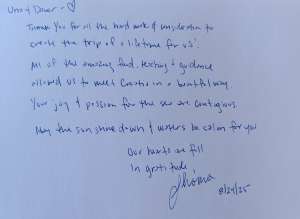 Thank you for all the hard work &
create the trip of a lifetime for us!
All of the amazing food, teaching & guidance
allowed us to meet Croatia in a beautiful way.
Your joy & passion for the sea are contagious.
May the sun shine down & waters be calm for you
Our hearts are full
In gratitude
8/29/25